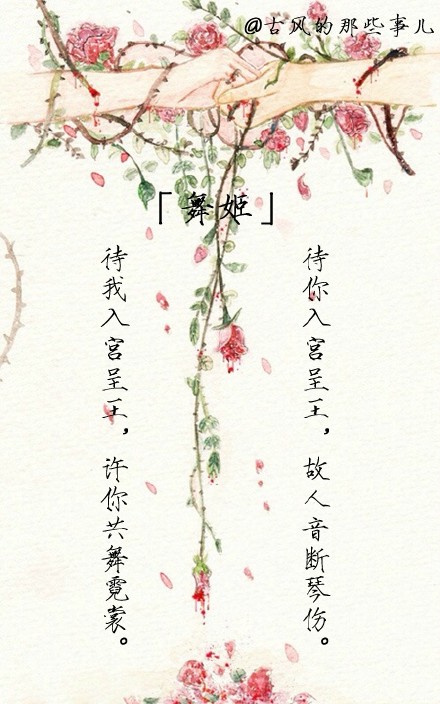 @古风的那些事儿
「舞姬」
待你入宫呈王，故人音断琴伤。
待我入宫呈王，许你共舞霓裳。